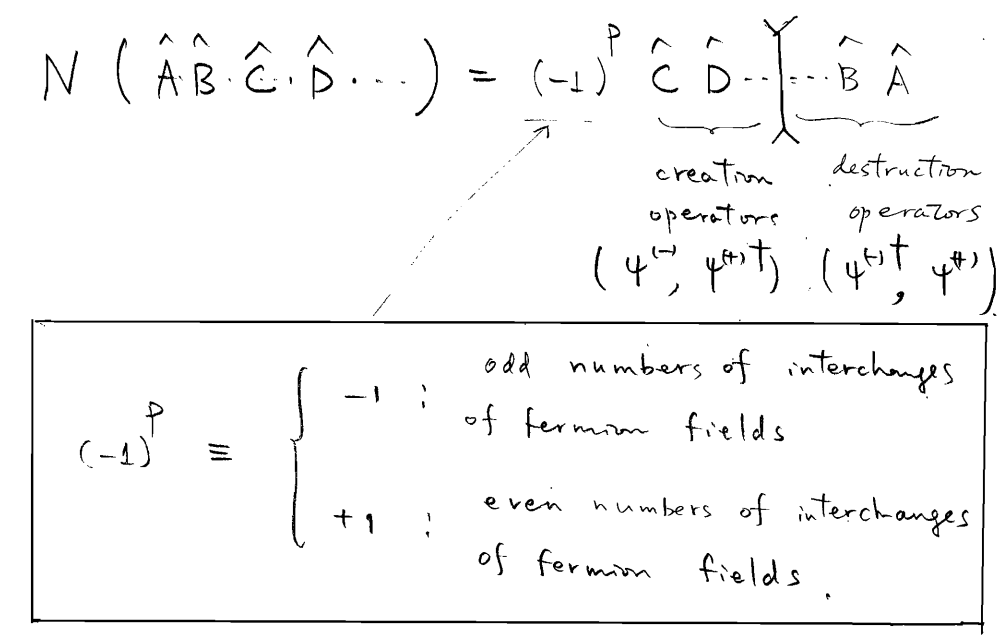 N ( Â·B̂·Ĉ·D̂···· ) = (-1)^P Ĉ D̂ ·· ··· B̂ Â
creation destruction
operators operators
( ψ^(-), ψ^(+)† ) ( ψ^(-)†, ψ^(+) )
-1 : odd numbers of interchanges
of fermion fields
(-1)^P ≡ {
+1 : even numbers of interchanges
of fermion fields.